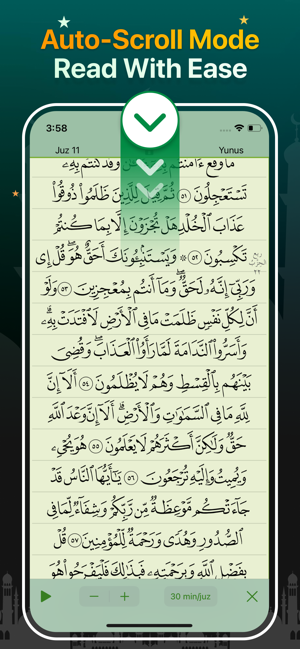 Auto-Scroll Mode
Read With Ease
3:58
Juz 11
Yunus
مَا وَقَعَ ءَامَنتُم بِهِۦٓ
تَسْتَعْجِلُونَ ٥١ ثُمَّ قِيلَ لِلَّذِينَ ظَلَمُوا۟ ذُوقُوا۟
عَذَابَ ٱلْخُلْدِ هَلْ تُجْزَوْنَ إِلَّا بِمَا كُنتُمْ
تَكْسِبُونَ ٥٢ ۞ وَيَسْتَنۢبِـُٔونَكَ أَحَقٌّ هُوَ ۖ قُلْ إِى
وَرَبِّىٓ إِنَّهُۥ لَحَقٌّ ۖ وَمَآ أَنتُم بِمُعْجِزِينَ ٥٣ وَلَوْ
أَنَّ لِكُلِّ نَفْسٍ ظَلَمَتْ مَا فِى ٱلْأَرْضِ لَٱفْتَدَتْ بِهِۦ ۗ
وَأَسَرُّوا۟ ٱلنَّدَامَةَ لَمَّا رَأَوُا۟ ٱلْعَذَابَ ۖ وَقُضِىَ
بَيْنَهُم بِٱلْقِسْطِ ۚ وَهُمْ لَا يُظْلَمُونَ ٥٤ أَلَآ إِنَّ
لِلَّهِ مَا فِى ٱلسَّمَـٰوَٰتِ وَٱلْأَرْضِ ۗ أَلَآ إِنَّ وَعْدَ ٱللَّهِ
حَقٌّ وَلَـٰكِنَّ أَكْثَرَهُمْ لَا يَعْلَمُونَ ٥٥ هُوَ يُحْىِۦ
وَيُمِيتُ وَإِلَيْهِ تُرْجَعُونَ ٥٦ يَـٰٓأَيُّهَا ٱلنَّاسُ قَدْ
جَآءَتْكُم مَّوْعِظَةٌ مِّن رَّبِّكُمْ وَشِفَآءٌ لِّمَا فِى
ٱلصُّدُورِ وَهُدًى وَرَحْمَةٌ لِّلْمُؤْمِنِينَ ٥٧ قُلْ
بِفَضْلِ ٱللَّهِ وَبِرَحْمَتِهِۦ فَبِذَٰلِكَ فَلْيَفْرَحُوا۟ هُوَ
30 min/juz